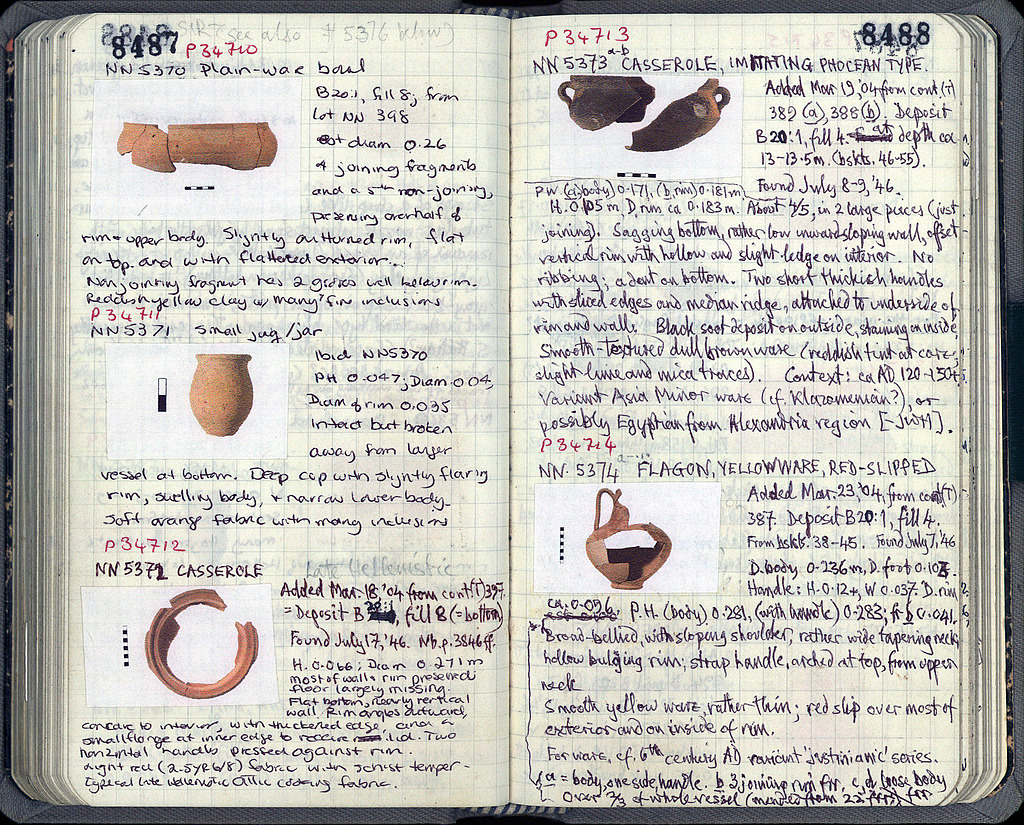 8487 P 34710
(see also # 5376 below)
NN 5370 Plain-ware bowl
B20:1, fill 8; from
Lot NN 398
est diam 0.26
4 joining fragments
and a 5th non-joining,
preserving over half of
rim + upper body. Slightly outturned rim, flat
on top and with flattened exterior.
Nonjoining fragment has 2 grooves well below rim.
Reddish yellow clay w many fine inclusions
P 34711
NN 5371 Small jug/jar
Ibid NN5370
PH 0.047; Diam 0.04,
Diam of rim 0.035
Intact but broken
away from larger
vessel at bottom. Deep cup with slightly flaring
rim, swelling body, + narrow lower body.
Soft orange fabric with many inclusions
P 34712
NN 5372 CASSEROLE Late Hellenistic
Added Mar. 18 '04 from cont.(T) 397.
= Deposit B 20:1, fill 8 (= bottom)
Found July 17, '46. Nb. p. 3846 ff.
H. 0.066; Diam 0.271 m
most of wall + rim preserved
floor largely missing.
Flat bottom, nearly vertical
wall. Rim angles outward,
concave to interior, with thickened edge and a
small flange at inner edge to receive lid. Two
horizontal handles pressed against rim.
Light red (2.5YR 6/8) fabric with schist temper-
typical late Hellenistic Attic cooking fabric.
P 34713 8488
NN 5373 a-b CASSEROLE, IMITATING PHOCEAN TYPE.
Added Mar. 19, '04 from cont. (T)
389 (a), 388 (b). Deposit
B 20:1, fill 4. at depth ca
13-13.5m. (bskts. 46-55).
Found July 8-9, '46.
P.W. (a, body) 0.171, (b, rim) 0.181 m
H. 0.105 m. D. rim ca 0.183 m. About 4/5, in 2 large pieces (just
joining). Sagging bottom, rather low inward sloping wall, offset
vertical rim with hollow and slight ledge on interior. No
ribbing; a dent on bottom. Two short thickish handles
with sliced edges and median ridge, attached to underside of
rim and wall. Black soot deposit on outside, staining on inside,
Smooth-textured dull brown ware (reddish tint at core,
slight lime and mica traces). Context: ca AD 120-150+
Variant Asia Minor ware (cf. Klazomenian?), or
possibly Egyptian from Alexandria region [-JWH].
P 34714
NN. 5374 FLAGON, YELLOW WARE, RED-SLIPPED
Added Mar. 23, '04, from cont(T)
387. Deposit B 20:1, fill 4.
From bskts. 38-45. Found July 7, '46
D. body 0.236 m, D. foot
Handle: H. 0.12+, W 0.037. D. rim
ca. 0.096 P.H. (body) 0.281, (with handle) 0.283; 0.041.
Broad-bellied, with sloping shoulder, rather wide tapering neck,
hollow bulging rim; strap handle, arched at top, from upper
neck
Smooth yellow ware, rather thin; red slip over most of
exterior and on inside of rim.
For ware, cf. 6th century AD variant 'Justinianic' series.
a = body, one side, handle. b 3 joining rim fr., c, d loose body
Over 2/3 of whole vessel (mended from 22 frr),